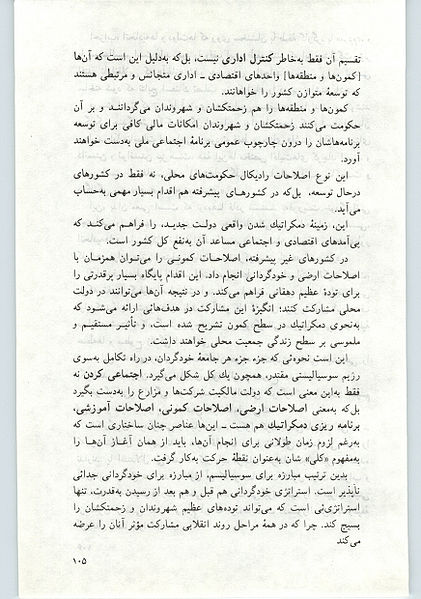 تقسیم آن فقط به‌خاطر کنترل اداری نیست، بل‌که به‌دلیل این است که آن‌ها
[کمون‌ها و منطقه‌ها] واحدهای اقتصادی ـ اداری متجانس و مرتبطی هستند
که توسعهٔ متوازن کشور را خواهانند.
کمون‌ها و منطقه‌ها را هم زحمتکشان و شهروندان می‌گردانند و بر آن
حکومت می‌کنند زحمتکشان و شهروندان امکانات مالی کافی برای توسعه
برنامه‌هاشان را درون چارچوب عمومی برنامهٔ اجتماعی ملی به‌دست خواهند
آورد.
این نوع اصلاحات رادیکال حکومت‌های محلی، نه فقط در کشورهای
درحال توسعه، بل‌که در کشورهای پیشرفته هم اقدام بسیار مهمی به‌حساب
می‌آید.
این، زمینهٔ دمکراتیك شدن واقعی دولت جدید، را فراهم می‌کند که
پی‌آمدهای اقتصادی و اجتماعی مساعد آن به‌نفع کل کشور است.
در کشورهای غیر پیشرفته، اصلاحات کمونی را می‌توان همزمان با
اصلاحات ارضی و خودگردانی انجام داد. این اقدام پایگاه بسیار پرقدرتی را
برای تودهٔ عظیم دهقانی فراهم می‌کند. و در نتیجه آن‌ها می‌توانند در دولت
محلی مشارکت کنند؛ انگیزهٔ این مشارکت در هدف‌هائی ارائه می‌شود که
به‌نحوی دمکراتیك در سطح کمون تشریح شده است، و تأثیر مستقیم و
ملموسی بر سطح زندگی جمعیت محلی خواهند داشت.
این است نحوه‌ئی که جزء جزء هر جامعهٔ خودگردان، در راه تکامل به‌سوی
رژیم سوسیالیستی مقتدر، همچون یك کل شکل می‌گیرد. اجتماعی کردن نه
فقط به‌این معنی است که دولت مالکیت شرکت‌ها و مزارع را به‌دست بگیرد
بل‌که به‌معنی اصلاحات ارضی، اصلاحات کمونی، اصلاحات آموزشی،
برنامه ریزی دمکراتیك هم هست ـ این‌ها عناصر چنان ساختاری است که
به‌رغم لزوم زمان طولانی برای انجام آن‌ها، باید از همان آغاز آن‌ها را
به‌مفهوم «کلی» شان به‌عنوان نقطهٔ حرکت به‌کار گرفت.
بدین ترتیب مبارزه برای سوسیالیسم، از مبارزه برای خودگردانی جدائی
ناپذیر است. استراتژی خودگردانی هم قبل و هم بعد از رسیدن به‌قدرت، تنها
استراتژی‌ئی است که می‌تواند توده‌های عظیم شهروندان و زحمتکشان را
بسیج کند. چرا که در همهٔ مراحل روند انقلابی مشارکت مؤثر آنان را عرضه
می‌کند
۱۰۵